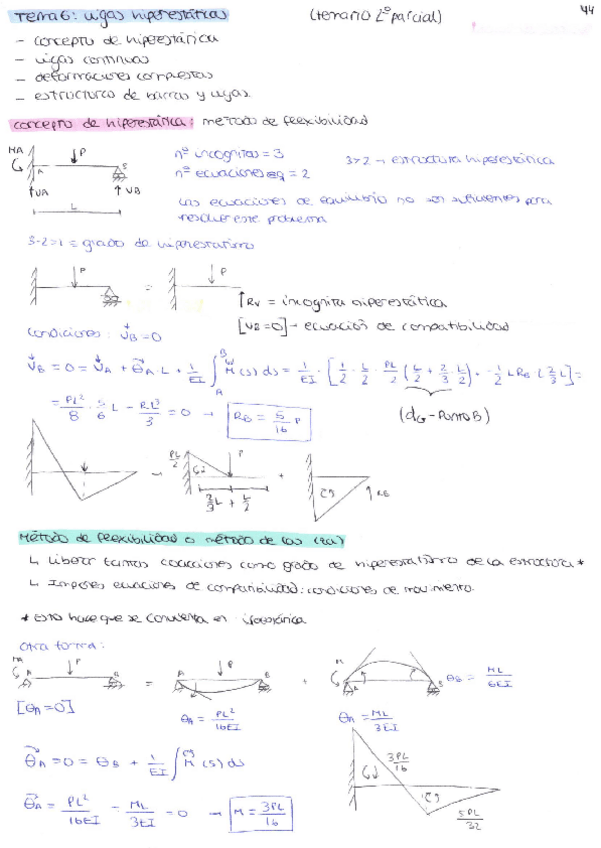 Tema 6: vigas hiperestáticas (temario 2º parcial) 44
- concepto de hiperestática
- vigas continuas
- deformaciones compuestas
- estructuras de barras y vigas
concepto de hiperestática: método de flexibilidad
MA P
A B
VA VB
L
nº incognitas = 3
nº ecuaciones eq = 2
3>2 → estructura hiperestática
Las ecuaciones de equilibrio no son suficientes para
resolver este problema
3-2=1 = grado de hiperestatismo
P = P
↑RV = incognita hiperestática
[VB=0] → ecuación de compatibilidad
condiciones: VB=0
VB = 0 = VA + θA·L + 1/EI ∫ M(s) ds = 1/EI · [1/2 · L/2 · PL/2 (L/2 + 2/3 · L/2) - 1/2 LRB · L 2/3 L] =
= PL²/8 · 5/6 L - RL³/3 = 0 → RB = 5/16 P
(dG - PUNTO B)
PL/2 P + ↑RB
2/3 L + L/2
Método de flexibilidad o método de las
↳ Liberar tantas coacciones como grado de hiperestatismo de la estructura *
↳ Imponer ecuaciones de compatibilidad: condiciones de movimiento
* esto hace que se convierta en isostática
otra forma:
MA A P B = A P B + M A B θB = ML/6EI
[θA=0] θA = PL²/16EI θA = ML/3EI
θA = 0 = θB + 1/EI ∫ M(s) ds
θA = PL²/16EI - ML/3EI = 0 → M = 3PL/16
3PL/16
5PL/32